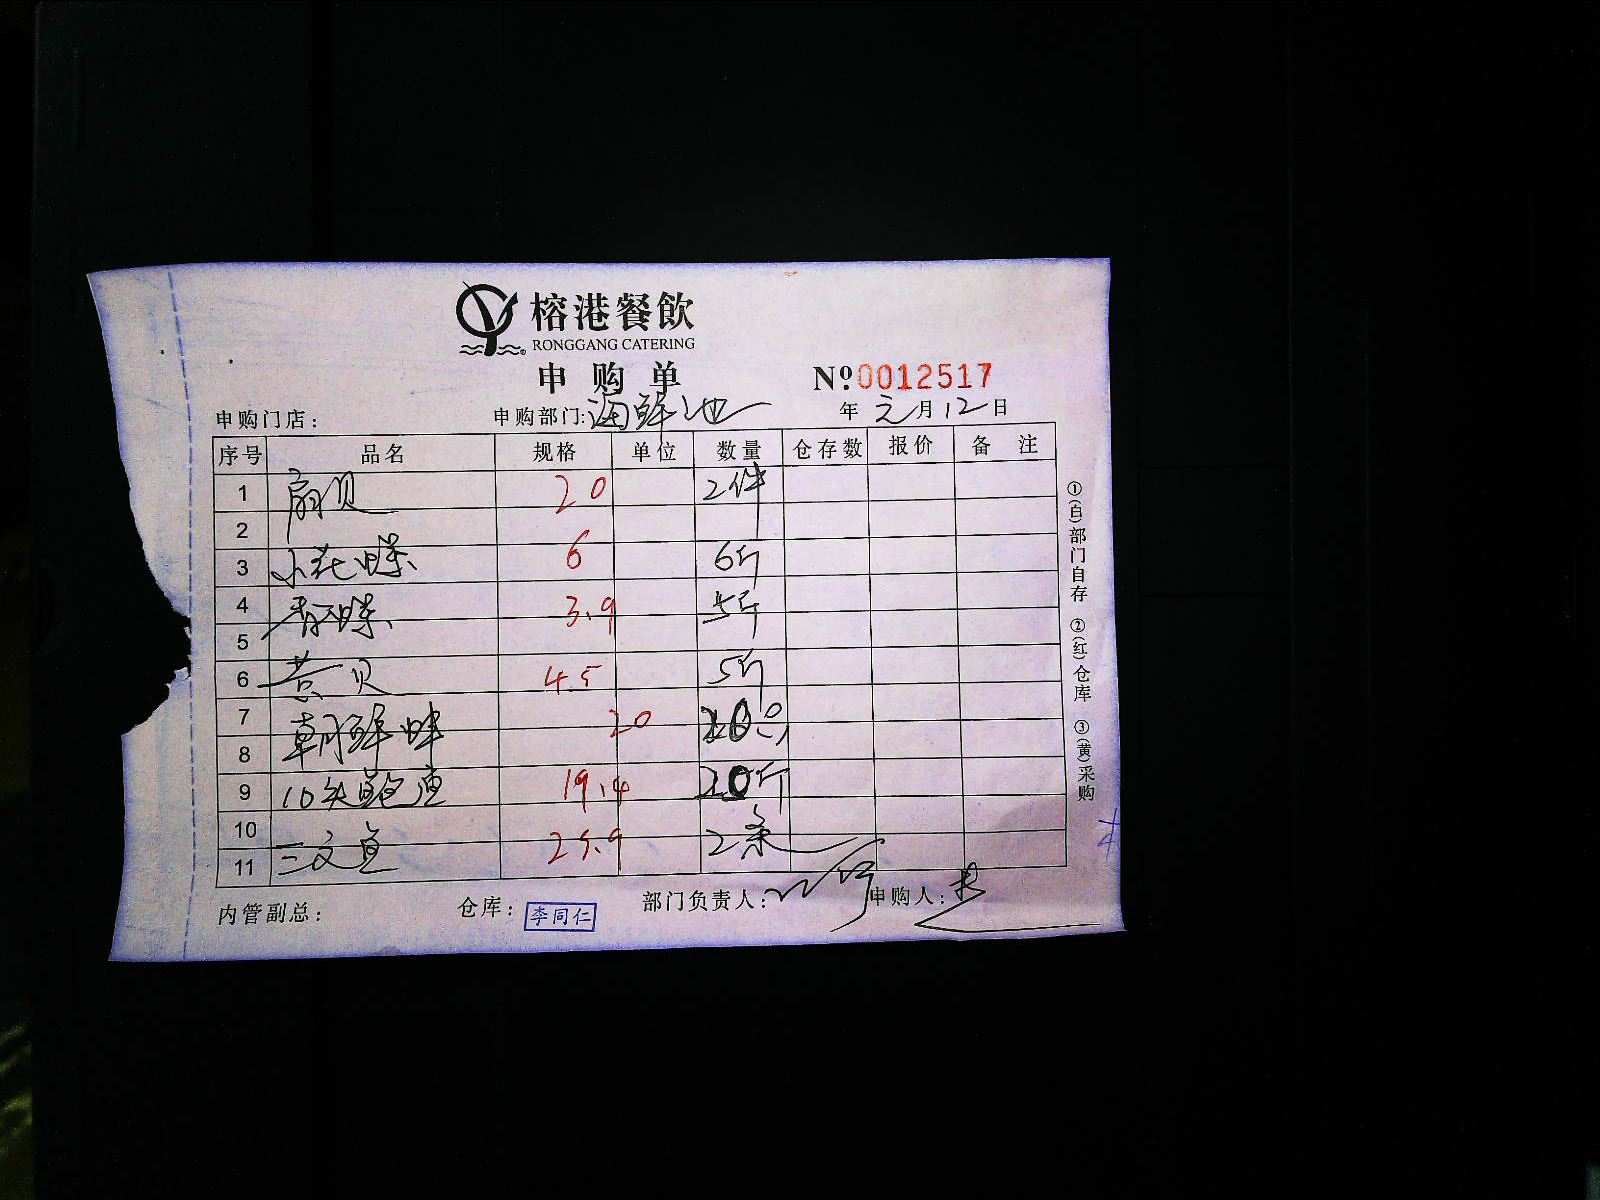 榕港餐飲
RONGGANG CATERING
申购单
№0012517
申购门店： 申购部门:海鲜池 年元月12日
序号 品名 规格 单位 数量 仓存数 报价 备注
1 扇贝 20 2件
2
3 小花蝶 6 6斤
4 青蝶 3.9 5斤
5
6 黄贝 4.5 5斤
7 朝鲜蚌 20 20只
8
9 10头鲍鱼 19.4 20斤
10
11 三文鱼 25.9 2条
①(白)部门自存 ②(红)仓库 ③(黄)采购
内管副总： 仓库：李同仁 部门负责人： 申购人：